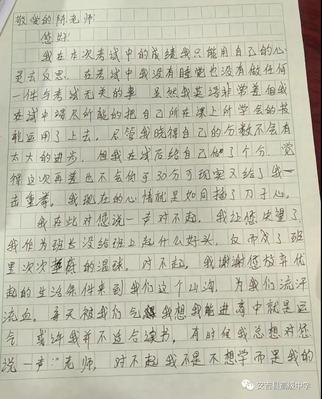 敬爱的陈老师：
您好！
我在本次考试中的成绩我只能用自己的心
灵去反思。在考试中我没有睡觉也没有做任何
一件与考试无关的事。虽然我英语非常差但我
在试中竭尽所能的把自己所在课上所学会的技
能运用了上去。尽管我晓得自己的分数不会有
太大的进步。但我在试后给自己估了个分。觉
得这次再差也不会低于30分可现实又给了我一
击重拳。我现在的心情就是如同插了刀子心。
我在此对您说一声对不起。我让您失望了
我作为班长没给班上起什么好头。反而成了班
里次次的混球。对不起。我谢谢您放弃优
起的生活条件来到我们这个山沟。为我们流汗
流血。每天被我们气我想我能进高中就是运
气。或许我并不适合读书。有时候我总想对您
说一声"老师，对不起我不是不想学而是我的
安吉县高级中学